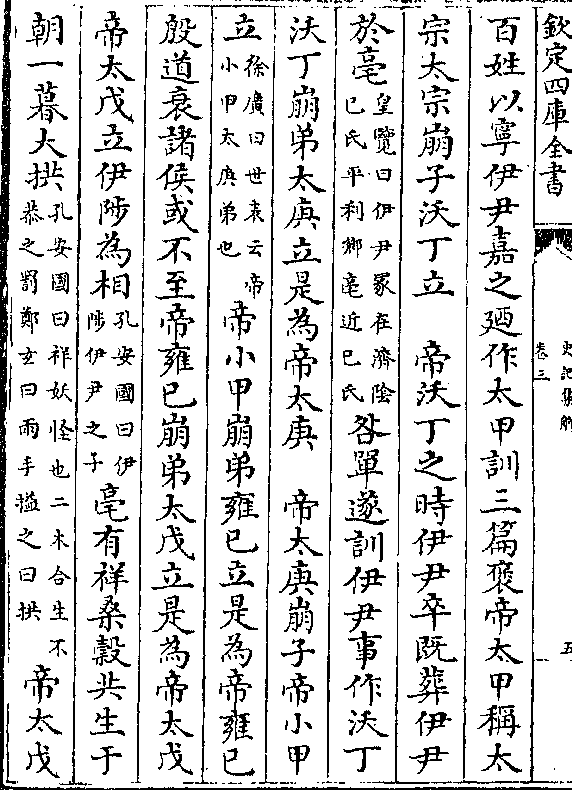 欽定四庫全書
史記集解
卷三
五
百姓以寧伊尹嘉之廼作太甲訓三篇襃帝太甲稱太
宗太宗崩子沃丁立　帝沃丁之時伊尹卒既葬伊尹
於亳
皇覽曰伊尹冢在濟陰
已氏平利鄉亳近已氏
咎單遂訓伊尹事作沃丁
沃丁崩弟太庚立是為帝太庚　帝太庚崩子帝小甲
立
徐廣曰世表云帝
小甲太庚弟也
帝小甲崩弟雍已立是為帝雍已
殷道衰諸侯或不至帝雍已崩弟太戊立是為帝太戊
帝太戊立伊陟為相
孔安國曰伊
陟伊尹之子
亳有祥桑榖共生于
朝一暮大拱
孔安國曰祥妖怪也二木合生不
恭之罰鄭玄曰兩手搤之曰拱
帝太戊